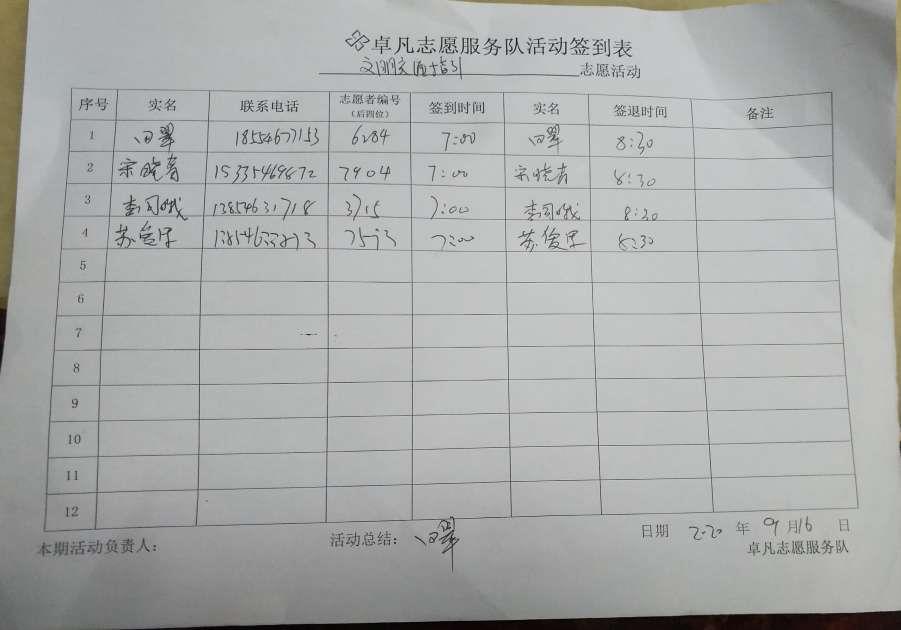 卓凡志愿服务队活动签到表
文明交通指引 志愿活动
序号 实名 联系电话 志愿者编号（后四位） 签到时间 实名 签退时间 备注
1 田翠 18554677153 6284 7:00 田翠 8:30
2 宋晓青 15335469872 7904 7:00 宋晓青 8:30
3 13854631718 3715 7:00 8:30
4 苏俊 7:00 苏俊 8:30
5
6
7
8
9
10
11
12
本期活动负责人： 活动总结： 田翠 日期 2020 年 9 月 16 日
卓凡志愿服务队